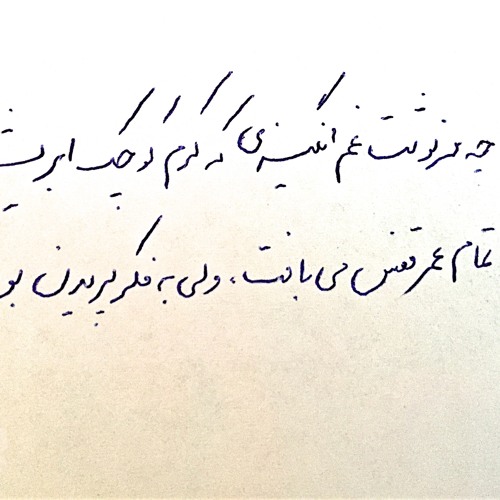 چه سرنوشت غم انگیزی که کرم کوچک ابریش
تمام عمر قفس می بافت، ولی به فکر پریدن بو